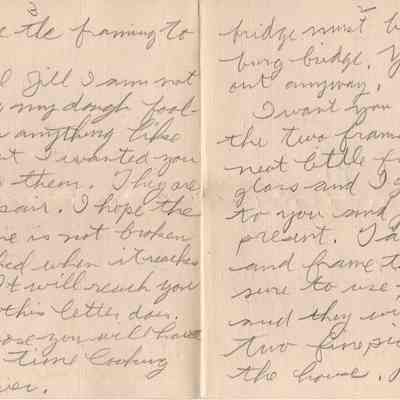 3
the framing to
Jill I am not
my dough fool-
anything like
I wanted you
them. They are
pair. I hope the
is not broken
when it reaches
It will reach you
this letter does.
you will have
time looking
2
bridge must
burg bridge.
out anyway.
I want you
the two frame
neat little
glass and I
to you and
present. I
and frame
sure to use
and they wi
two fine pi
the house.